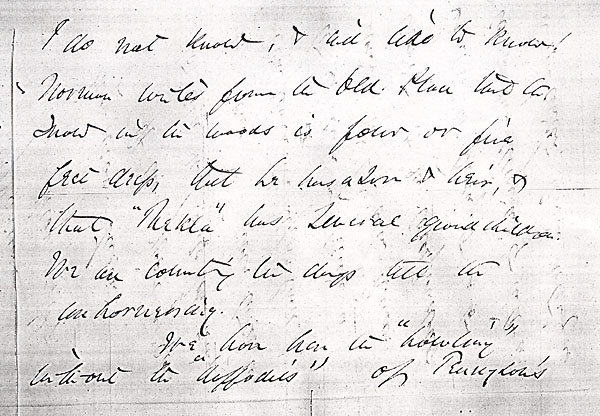 I do not know, & will like to know!
Norman writes from the Old Place that the
snow in the woods is four or five
feet deep, that he has a son & heir, &
that "Thekla" has several grandchildren.
We are counting the days till the
homecoming.
We have here the "howling"
without the "daffodils" of